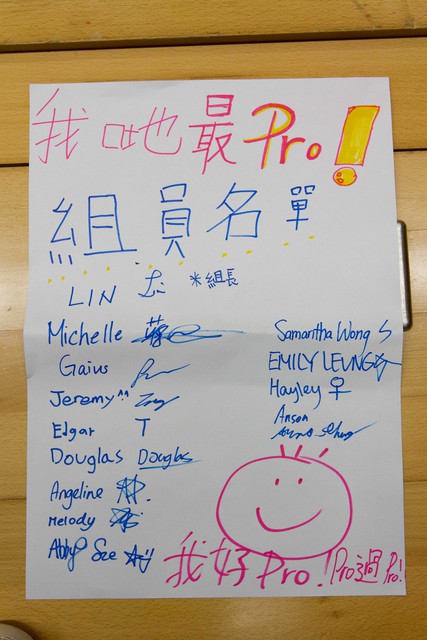 我哋最Pro!
組員名單
LIN *組長
Michelle
Gaius
Jeremy^^
Edgar T
Douglas Douglas
Angeline
Melody
Abby Sze
Samantha Wong
EMILY LEUNG
Hayley ♀
Anson
我好Pro! Pro過Pro!